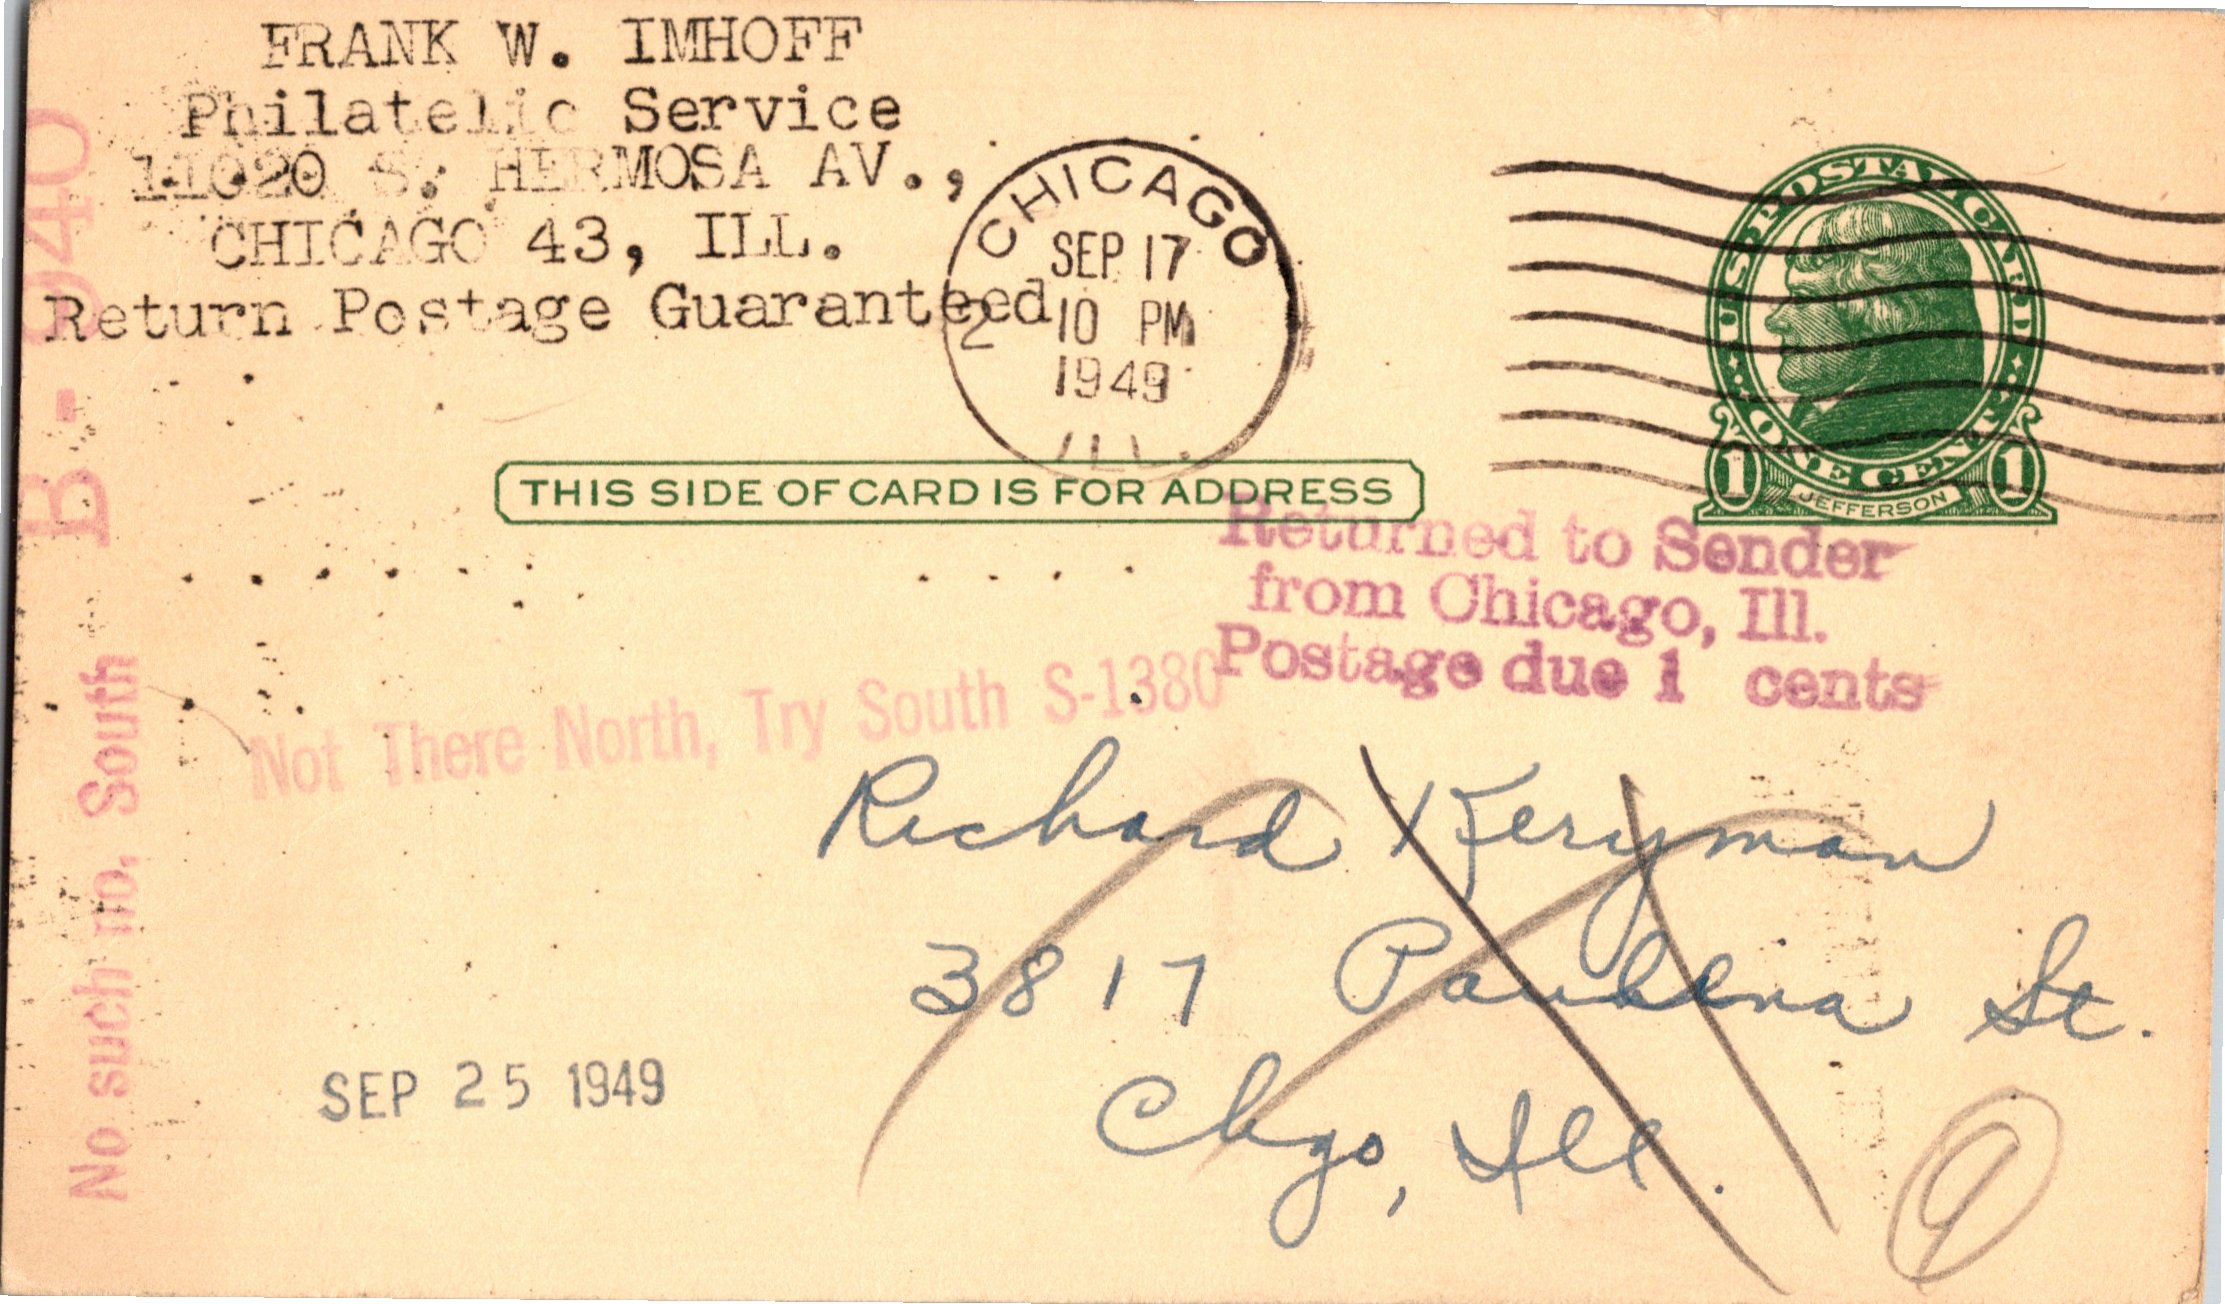 FRANK W. IMHOFF
Philatelic Service
11020 S. HERMOSA AV.,
CHICAGO 43, ILL.
Return Postage Guaranteed
CHICAGO
SEP 17
2 10 PM
1949
ILL.
U.S. POSTAL CARD
ONE CENT
1 JEFFERSON 1
THIS SIDE OF CARD IS FOR ADDRESS
Returned to Sender
from Chicago, Ill.
Postage due 1 cents
Not There North, Try South S-1380
No such no. South
B-940
Richard Keryman
3817 Paulina St.
Chgo, Ill.
SEP 25 1949
9